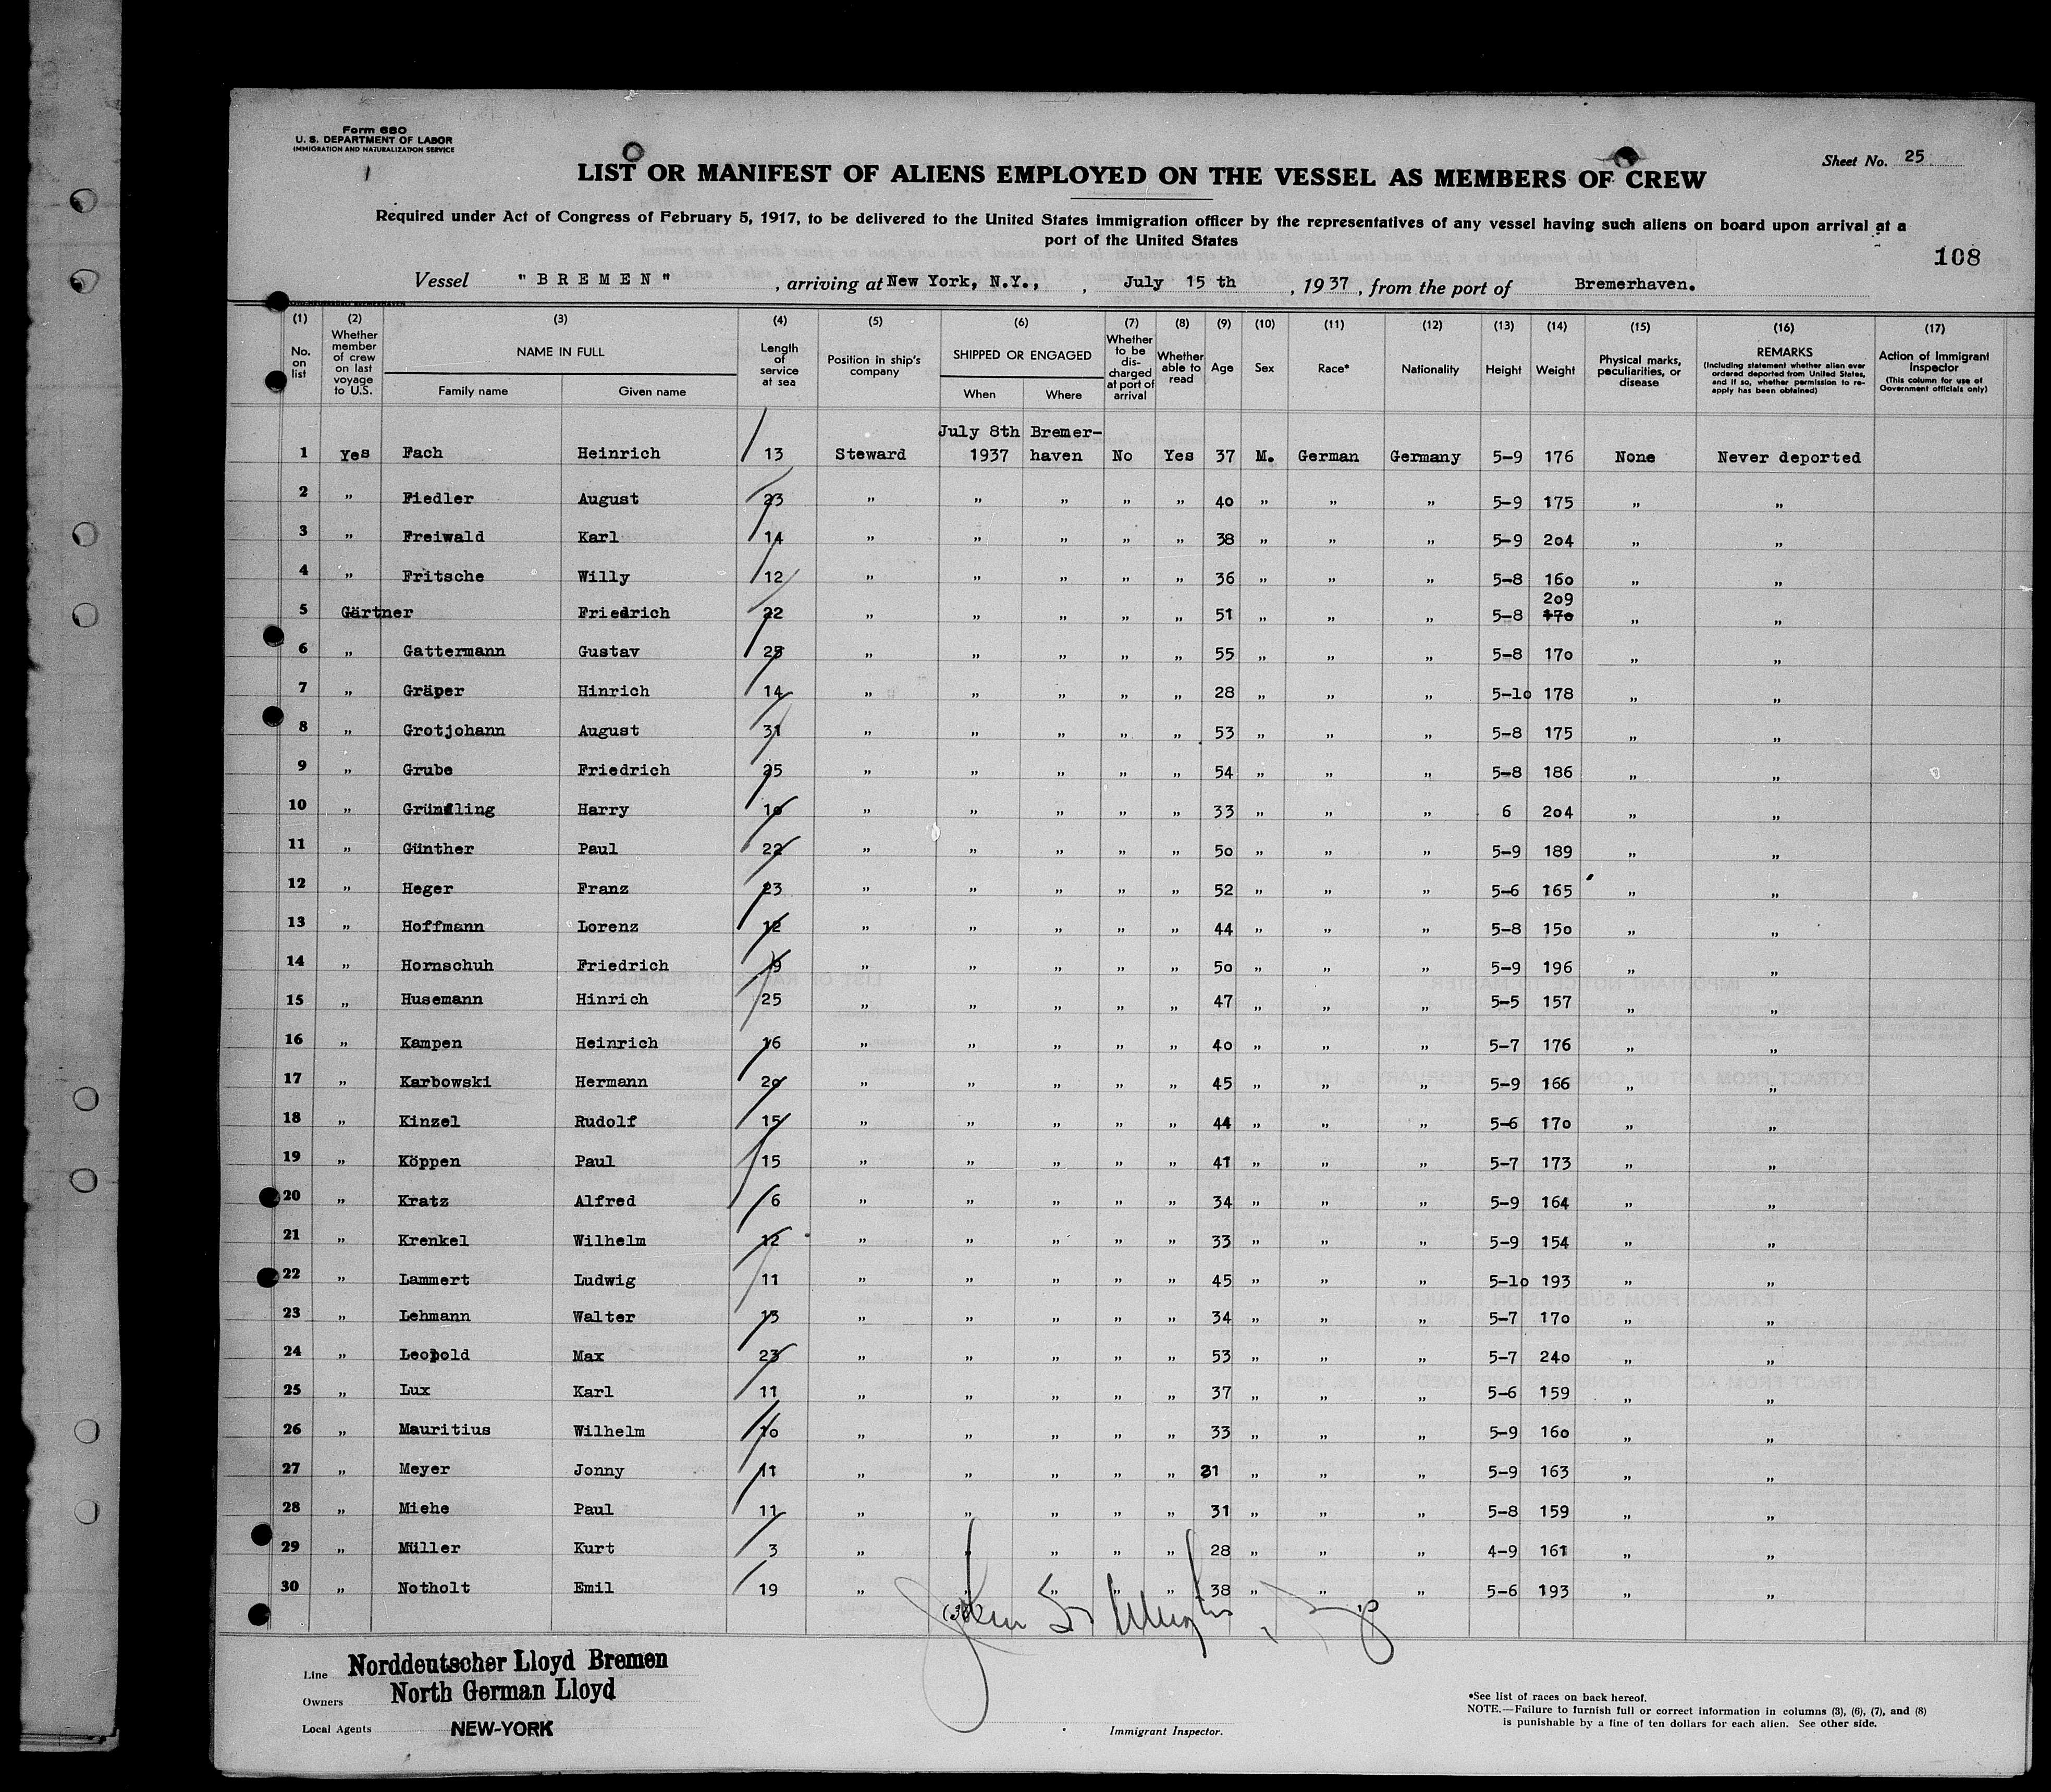 Form 680
U. S. DEPARTMENT OF LABOR
IMMIGRATION AND NATURALIZATION SERVICE
Sheet No. 25
LIST OR MANIFEST OF ALIENS EMPLOYED ON THE VESSEL AS MEMBERS OF CREW
Required under Act of Congress of February 5, 1917, to be delivered to the United States immigration officer by the representatives of any vessel having such aliens on board upon arrival at a
port of the United States
108
Vessel "BREMEN", arriving at New York, N.Y., , July 15 th, 1937, from the port of Bremerhaven.
(1) No. on list
(2) Whether member of crew on last voyage to U.S.
(3) NAME IN FULL
Family name Given name
(4) Length of service at sea
(5) Position in ship's company
(6) SHIPPED OR ENGAGED
When Where
(7) Whether to be discharged at port of arrival
(8) Whether able to read
(9) Age
(10) Sex
(11) Race*
(12) Nationality
(13) Height
(14) Weight
(15) Physical marks, peculiarities, or disease
(16) REMARKS (Including statement whether alien ever ordered deported from United States, and if so, whether permission to re-apply has been obtained)
(17) Action of Immigrant Inspector (This column for use of Government officials only)
1 Yes Fach Heinrich 13 Steward July 8th 1937 Bremer-haven No Yes 37 M. German Germany 5-9 176 None Never deported
2 " Fiedler August 23 " " " " " 40 " " " 5-9 175 " "
3 " Freiwald Karl 14 " " " " " 38 " " " 5-9 204 " "
4 " Fritsche Willy 12 " " " " " 36 " " " 5-8 160 " "
5 Gärtner Friedrich 22 " " " " " 51 " " " 5-8 209 170 " "
6 " Gattermann Gustav 25 " " " " " 55 " " " 5-8 170 " "
7 " Gräper Hinrich 14 " " " " " 28 " " " 5-10 178 " "
8 " Grotjohann August 31 " " " " " 53 " " " 5-8 175 " "
9 " Grube Friedrich 25 " " " " " 54 " " " 5-8 186 " "
10 " Gründling Harry 10 " " " " " 33 " " " 6 204 " "
11 " Günther Paul 22 " " " " " 50 " " " 5-9 189 " "
12 " Heger Franz 23 " " " " " 52 " " " 5-6 165 " "
13 " Hoffmann Lorenz 12 " " " " " 44 " " " 5-8 150 " "
14 " Hornschuh Friedrich 19 " " " " " 50 " " " 5-9 196 " "
15 " Husemann Hinrich 25 " " " " " 47 " " " 5-5 157 " "
16 " Kampen Heinrich 16 " " " " " 40 " " " 5-7 176 " "
17 " Karbowski Hermann 20 " " " " " 45 " " " 5-9 166 " "
18 " Kinzel Rudolf 15 " " " " " 44 " " " 5-6 170 " "
19 " Köppen Paul 15 " " " " " 41 " " " 5-7 173 " "
20 " Kratz Alfred 6 " " " " " 34 " " " 5-9 164 " "
21 " Krenkel Wilhelm 12 " " " " " 33 " " " 5-9 154 " "
22 " Lammert Ludwig 11 " " " " " 45 " " " 5-10 193 " "
23 " Lehmann Walter 13 " " " " " 34 " " " 5-7 170 " "
24 " Leopold Max 23 " " " " " 53 " " " 5-7 240 " "
25 " Lux Karl 11 " " " " " 37 " " " 5-6 159 " "
26 " Mauritius Wilhelm 10 " " " " " 33 " " " 5-9 160 " "
27 " Meyer Jonny 11 " " " " " 31 " " " 5-9 163 " "
28 " Miehe Paul 11 " " " " " 31 " " " 5-8 159 " "
29 " Müller Kurt 3 " " " " " 28 " " " 4-9 161 " "
30 " Notholt Emil 19 " " " " " 38 " " " 5-6 193 " "
Line Norddeutscher Lloyd Bremen
Owners North German Lloyd
Local Agents NEW-YORK
Immigrant Inspector.
*See list of races on back hereof.
NOTE.—Failure to furnish full or correct information in columns (3), (6), (7), and (8)
is punishable by a fine of ten dollars for each alien. See other side.